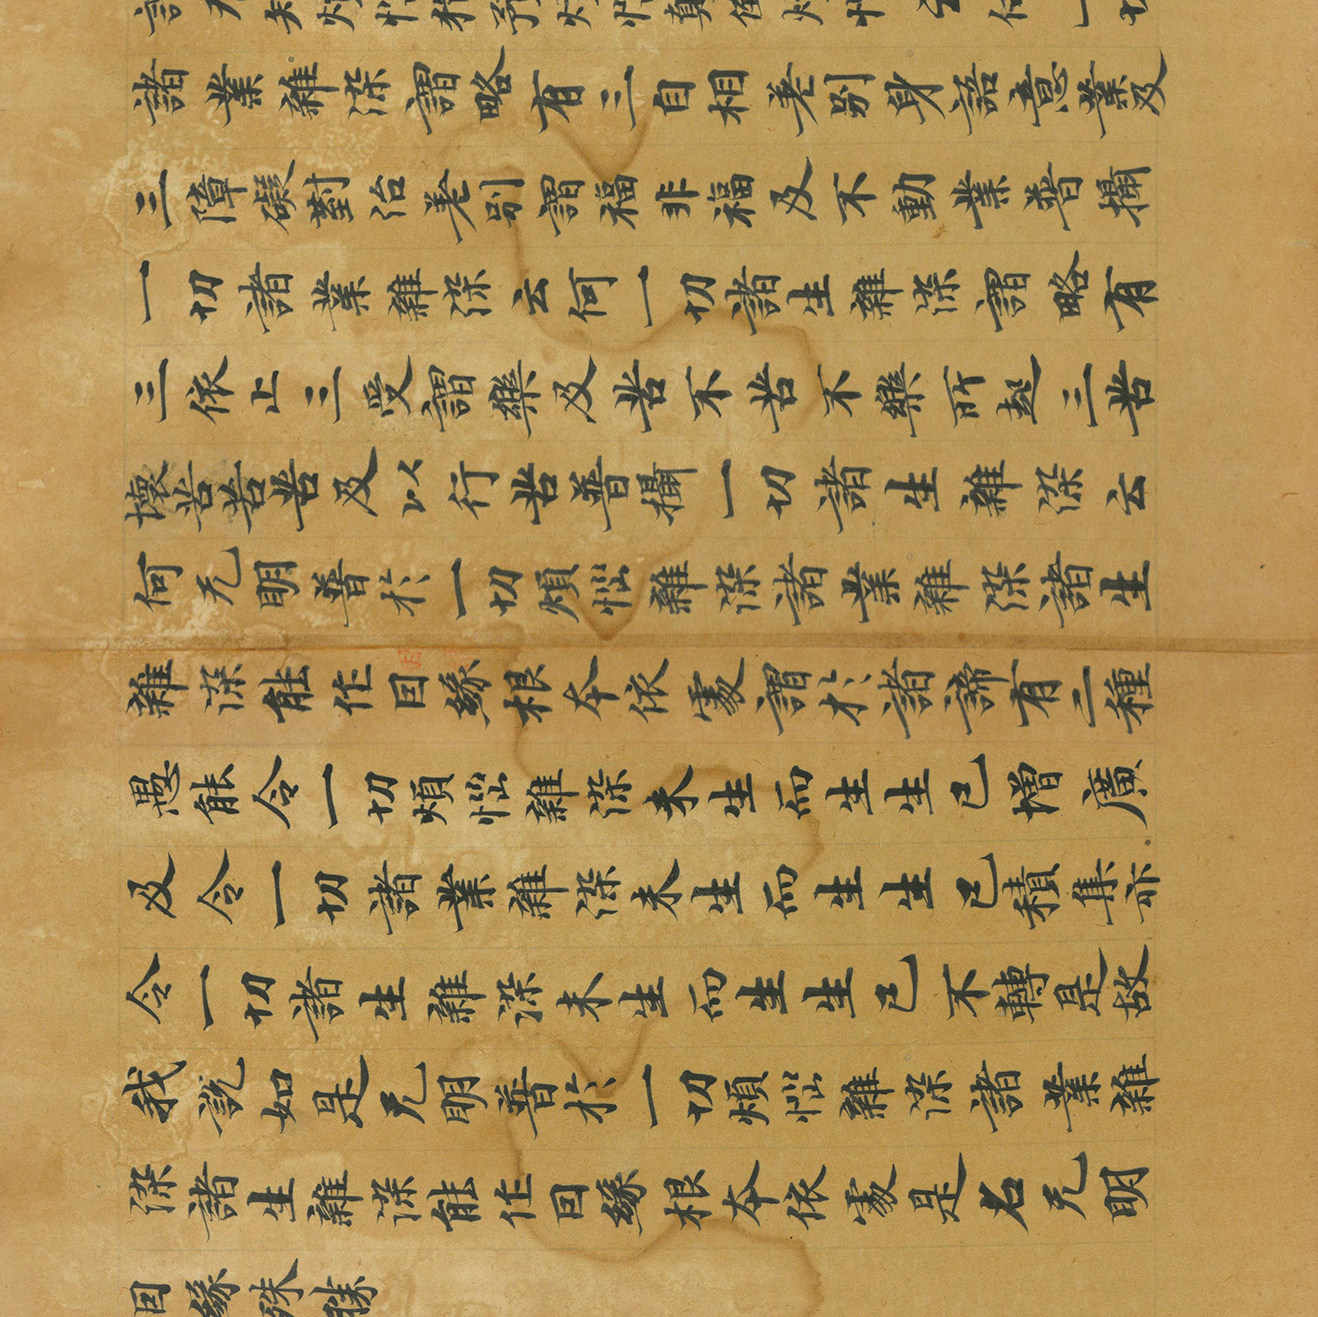 知煩惱猶予煩惱顛倒煩惱云何一切
諸業雜染謂略有三自相差別身語意業及
三障礙對治差別謂福非福及不動業普攝
一切諸業雜染云何一切諸生雜染謂略有
三依止三受謂樂及苦不苦不樂所起三苦
壞苦苦苦及以行苦普攝一切諸生雜染云
何无明普於一切煩惱雜染諸業雜染諸生
雜染能作因緣根本依處謂於諸諦有二種
愚能令一切煩惱雜染未生而生生已增廣
及令一切諸業雜染未生而生生已積集亦
令一切諸生雜染未生而生生已不轉是故
我說如是无明普於一切煩惱雜染諸業雜
染諸生雜染能作因緣根本依處是名无明
因緣殊勝